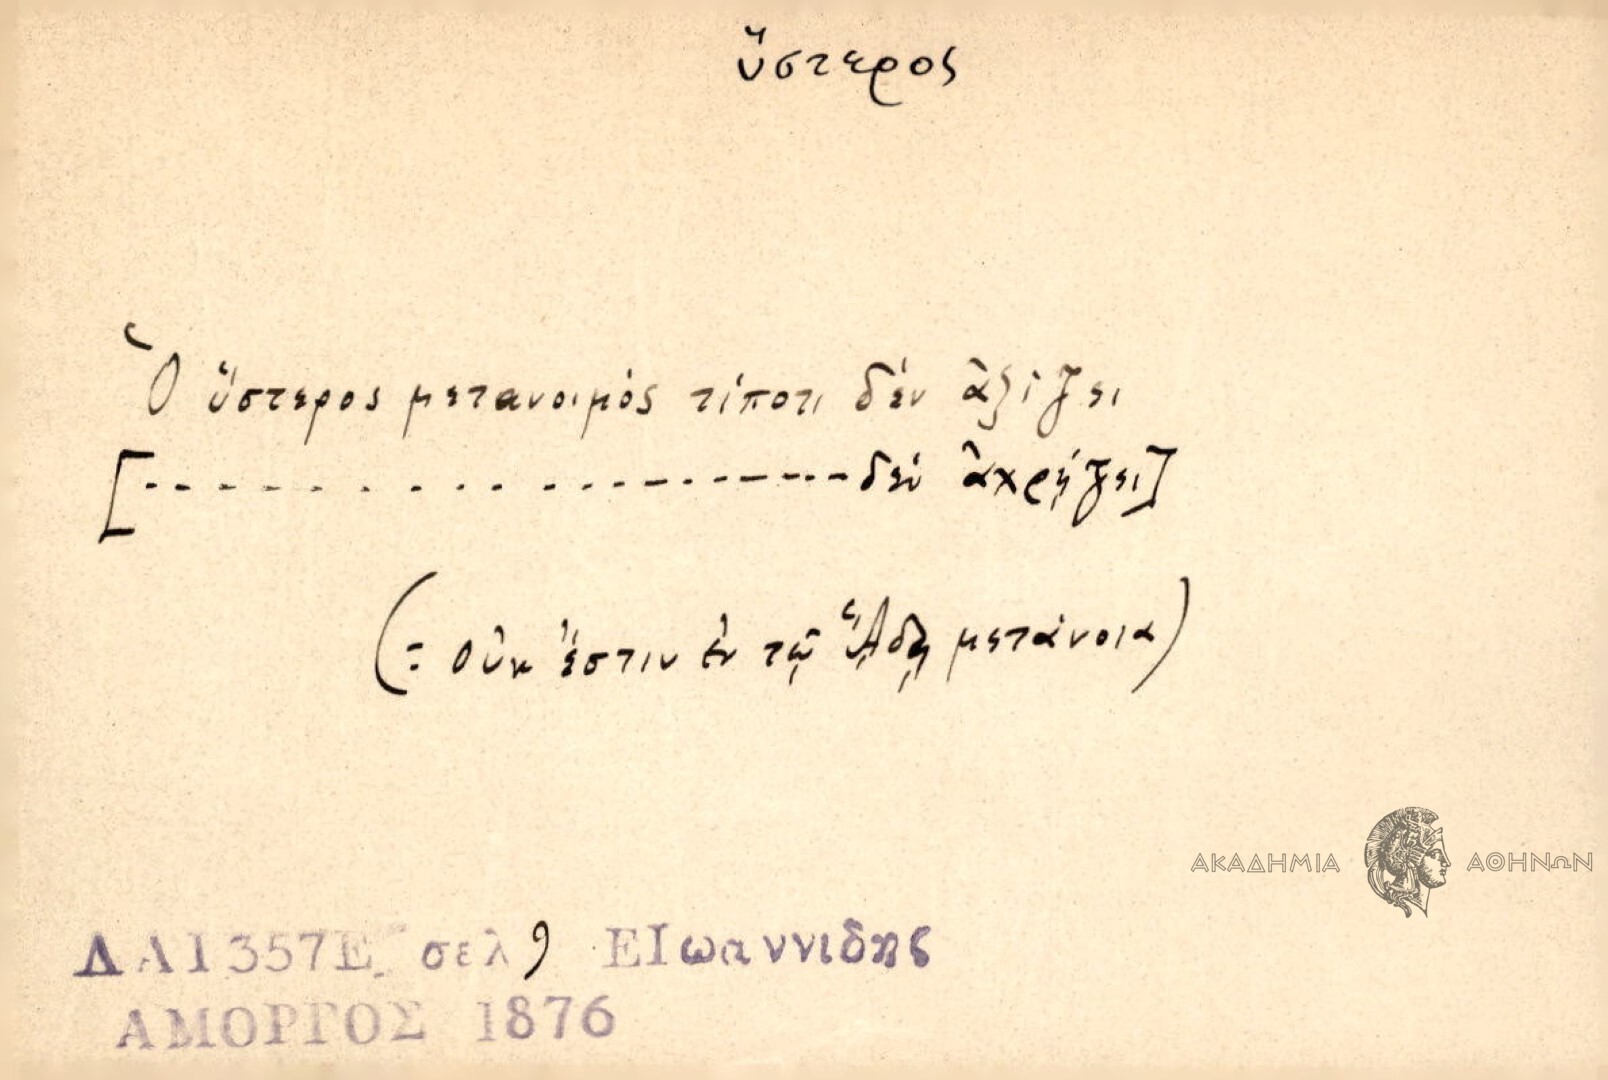 ὕστερος
Ὁ ὕστερος μετανοιμὸς τίποτι δὲν ἀξίζει
[- - - - - - - - - - - - - - - - - δὲν ἀχρῄζει]
(= οὐκ ἔστιν ἐν τῷ ᾍδῃ μετάνοια)
ΑΚΑΔΗΜΙΑ ΑΘΗΝΩΝ
ΔΑ1357Ε σελ 9 ΕΙωαννιδης
ΑΜΟΡΓΟΣ 1876